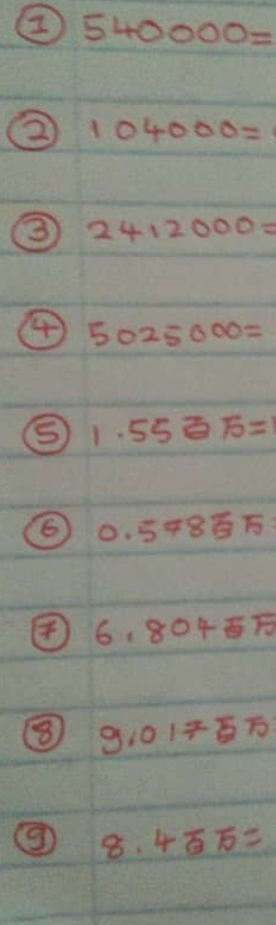 ① 540000=
② 104000=
③ 2412000=
④ 5025000=
⑤ 1.55百万=
⑥ 0.578百万
⑦ 6.804百万
⑧ 9.017百万
⑨ 8.4百万=